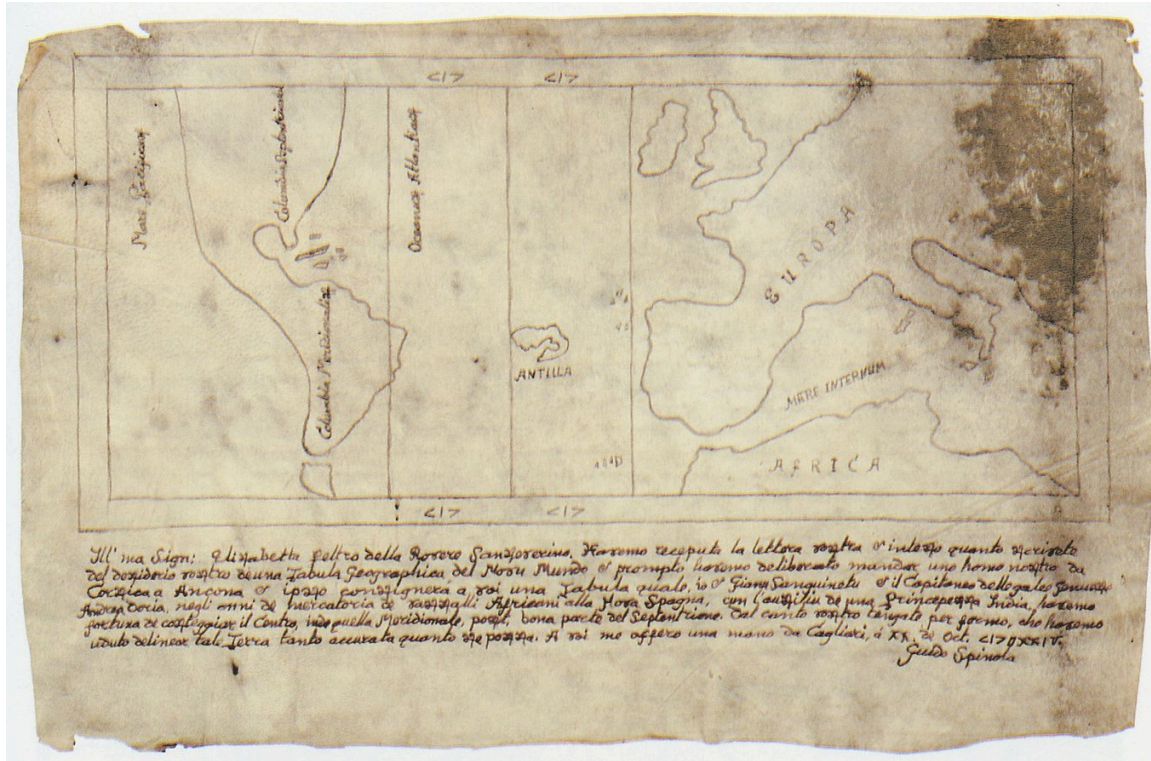 <I> <I>
Mare Pacificum
Columbia
Oceanus Atlanticus
EUROPA
Columbia Meridionalis
ANTILIA
MERE INTERNUM
AFRICA
<I> <I>
Ill'ma Sign: Elisabetta Feltro della Rovere Sanseverino. Havemo receputa la lettera vostra & inteso quanto scrivete
del desiderio vostro de una Tabula Geographica del Novu Mundo & prompto havemo deliberato mandar uno homo nostro da
Corsica a Ancona & ipso consignera a voi una Tabula quale, io & Giana Sanguinetu & il Capitaneo delle galee
Andrea Doria, negli anni de mercatoria de vassalli Africani alla Nova Spagna, cum l'auxiliu de una Princepessa India, havemo
fortuna de costeggiar il Centro, inde quella Meridionale, post, bona parte del Septentrione. Dal canto vostro tengate per fermo, che havemo
vduto delinear tale Terra tanto accurata quanto se possa. A voi me offero una mano da Cagliari, a XX. de Oct.
Guido Spinola